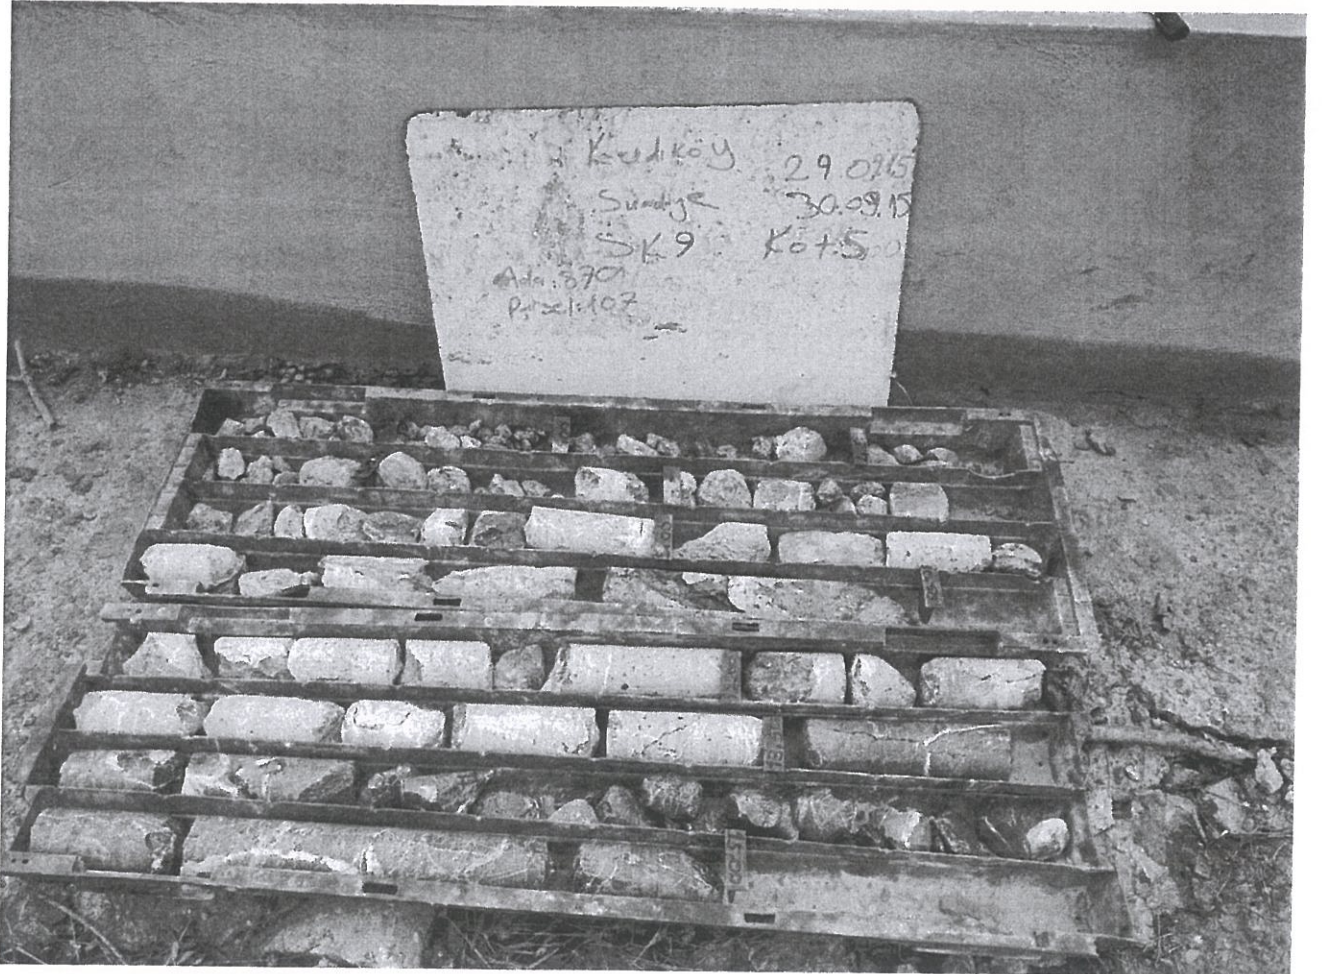 Kadıköy 29.09.15
Suadiye 30.09.15
SK9 Kot.5
Ada:3701
Parsel:107
15.00